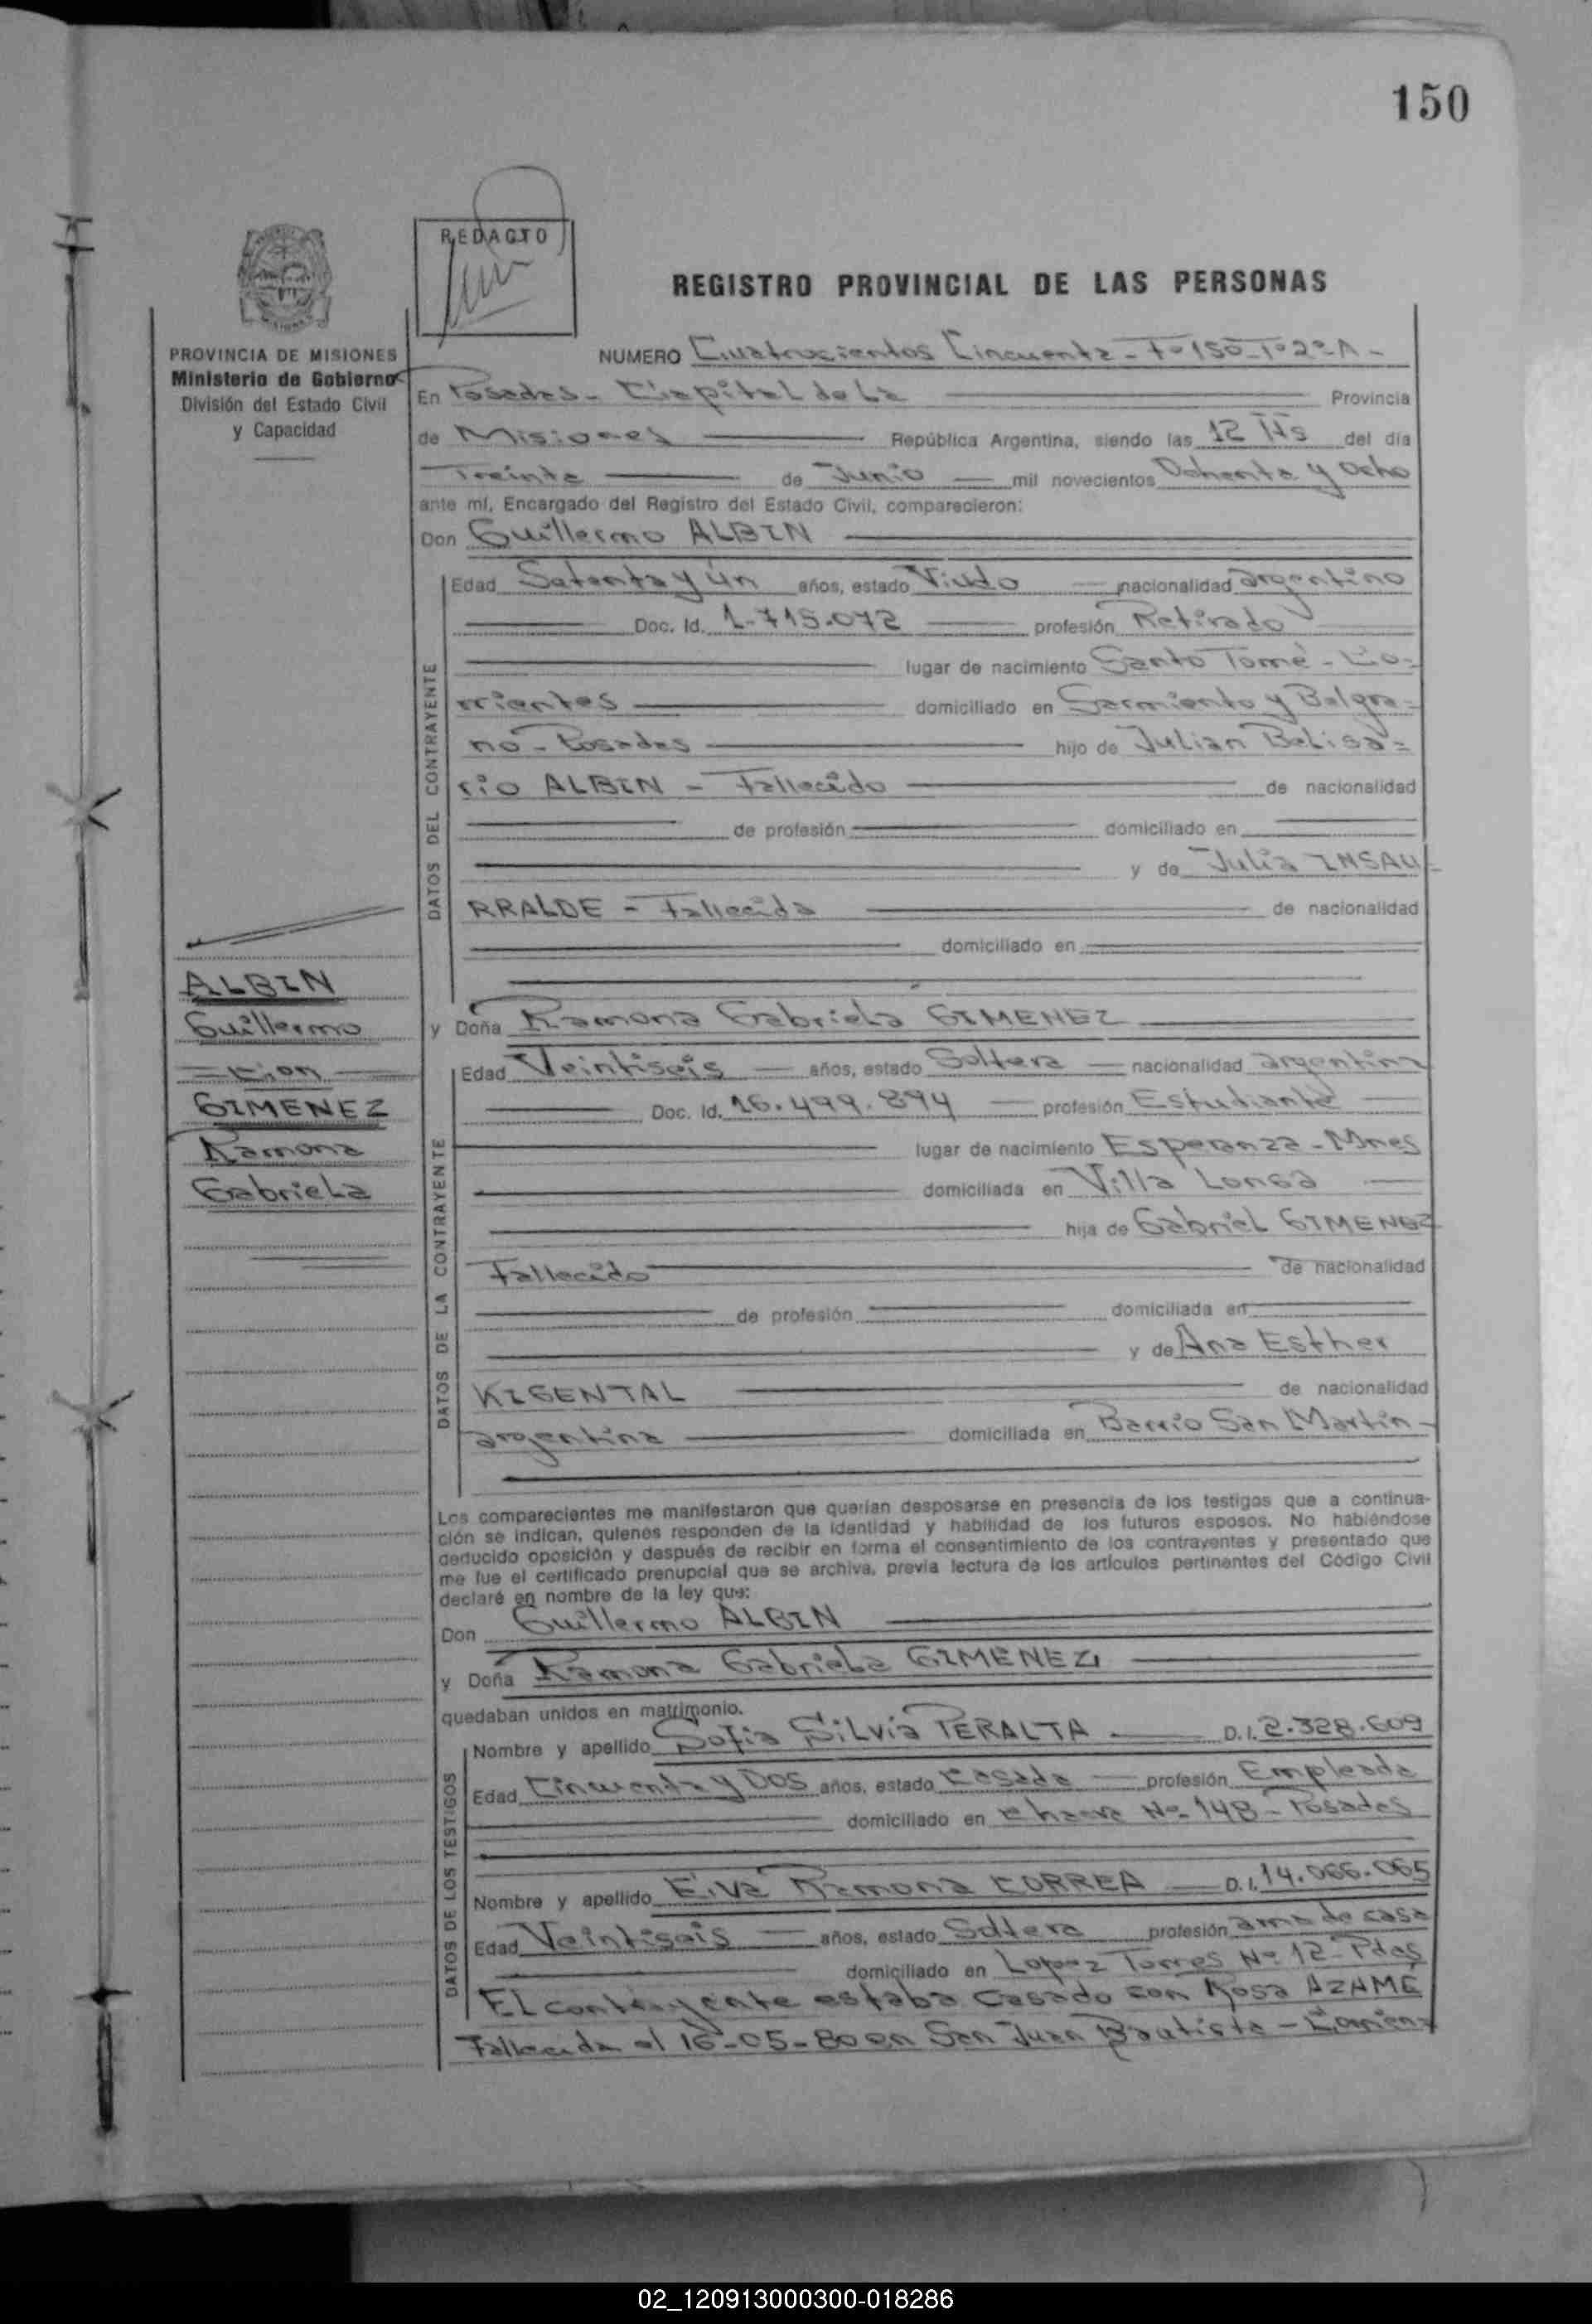 150
REDACTO
REGISTRO PROVINCIAL DE LAS PERSONAS
PROVINCIA DE MISIONES
Ministerio de Gobierno
División del Estado Civil
y Capacidad
NUMERO Cuatrocientos Cincuenta - Fº 150 - Tº 2º A -
En Posadas - Capital de La Provincia
de Misiones República Argentina, siendo las 12 Hs del día
Treinta de Junio mil novecientos Ochenta y Ocho
ante mí, Encargado del Registro del Estado Civil, comparecieron:
Don Guillermo ALBIN
DATOS DEL CONTRAYENTE
Edad Setenta y Un años, estado Viudo nacionalidad argentino
Doc. Id. 1.715.072 profesión Retirado
lugar de nacimiento Santo Tomé - Co=
rrientes domiciliado en Sarmiento y Belgra=
no - Posadas hijo de Julian Belisa=
rio ALBIN - Fallecido de nacionalidad
de profesión domiciliado en
y de Julia INSAU
RRALDE - Fallecida de nacionalidad
domiciliado en
ALBIN
Guillermo
= con =
GIMENEZ
Ramona
Gabriela
y Doña Ramona Gabriela GIMENEZ
DATOS DE LA CONTRAYENTE
Edad Veintiseis años, estado Soltera nacionalidad argentina
Doc. Id. 16.499.894 profesión Estudiante
lugar de nacimiento Esperanza - Mnes
domiciliada en Villa Longa
hija de Gabriel GIMENEZ
Fallecido de nacionalidad
de profesión domiciliada en
y de Ana Esther
KIGENTAL de nacionalidad
argentina domiciliada en Barrio San Martin -
Los comparecientes me manifestaron que querían desposarse en presencia de los testigos que a continua-
ción se indican, quienes responden de la identidad y habilidad de los futuros esposos. No habiéndose
deducido oposición y después de recibir en forma el consentimiento de los contrayentes y presentado que
me fue el certificado prenupcial que se archiva, previa lectura de los artículos pertinentes del Código Civil
declaré en nombre de la ley que:
Don Guillermo ALBIN
y Doña Ramona Gabriela GIMENEZ
quedaban unidos en matrimonio.
DATOS DE LOS TESTIGOS
Nombre y apellido Sofia Silvia PERALTA D.I. 2.328.609
Edad Cincuenta y Dos años, estado casada profesión Empleada
domiciliado en chacra Nº 148 - Posadas
Nombre y apellido Elva Ramona CORREA D.I. 14.066.065
Edad Veintiseis años, estado Soltera profesión ama de casa
domiciliado en Lopez Torres Nº 12 - Pdas
El contrayente estaba casado con Rosa AZAME
Fallecida el 16-05-80 en San Juan Bautista - Corrien=
02_120913000300-018286